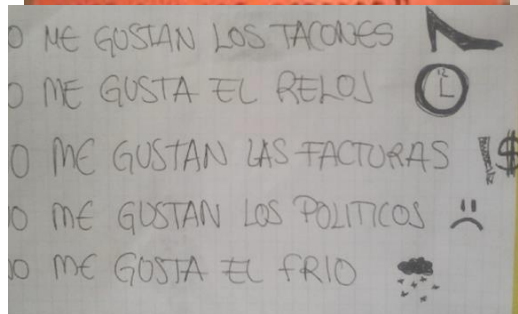 O ME GUSTAN LOS TACONES
O ME GUSTA EL RELOJ
O ME GUSTAN LAS FACTURAS
O ME GUSTAN LOS POLITICOS
O ME GUSTA EL FRIO